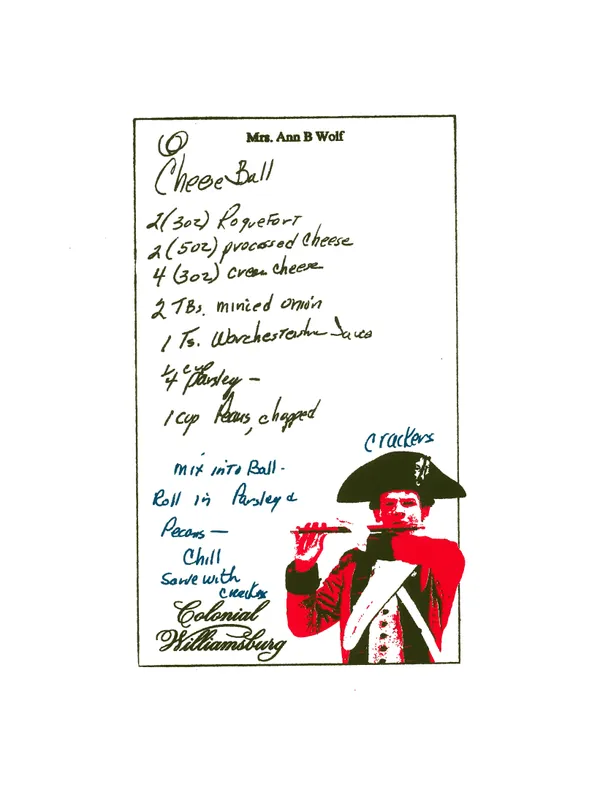 Mrs. Ann B Wolf
Cheese Ball
2 (3oz) Roquefort
2 (5oz) processed cheese
4 (3oz) cream cheese
2 TBs. minced onion
1 Ts. Worchestershire Sauce
1/4 cup Parsley —
1 cup Pecans, chopped
crackers
mix into Ball -
Roll in Parsley &
Pecans —
Chill
Serve with
crackers
Colonial
Williamsburg